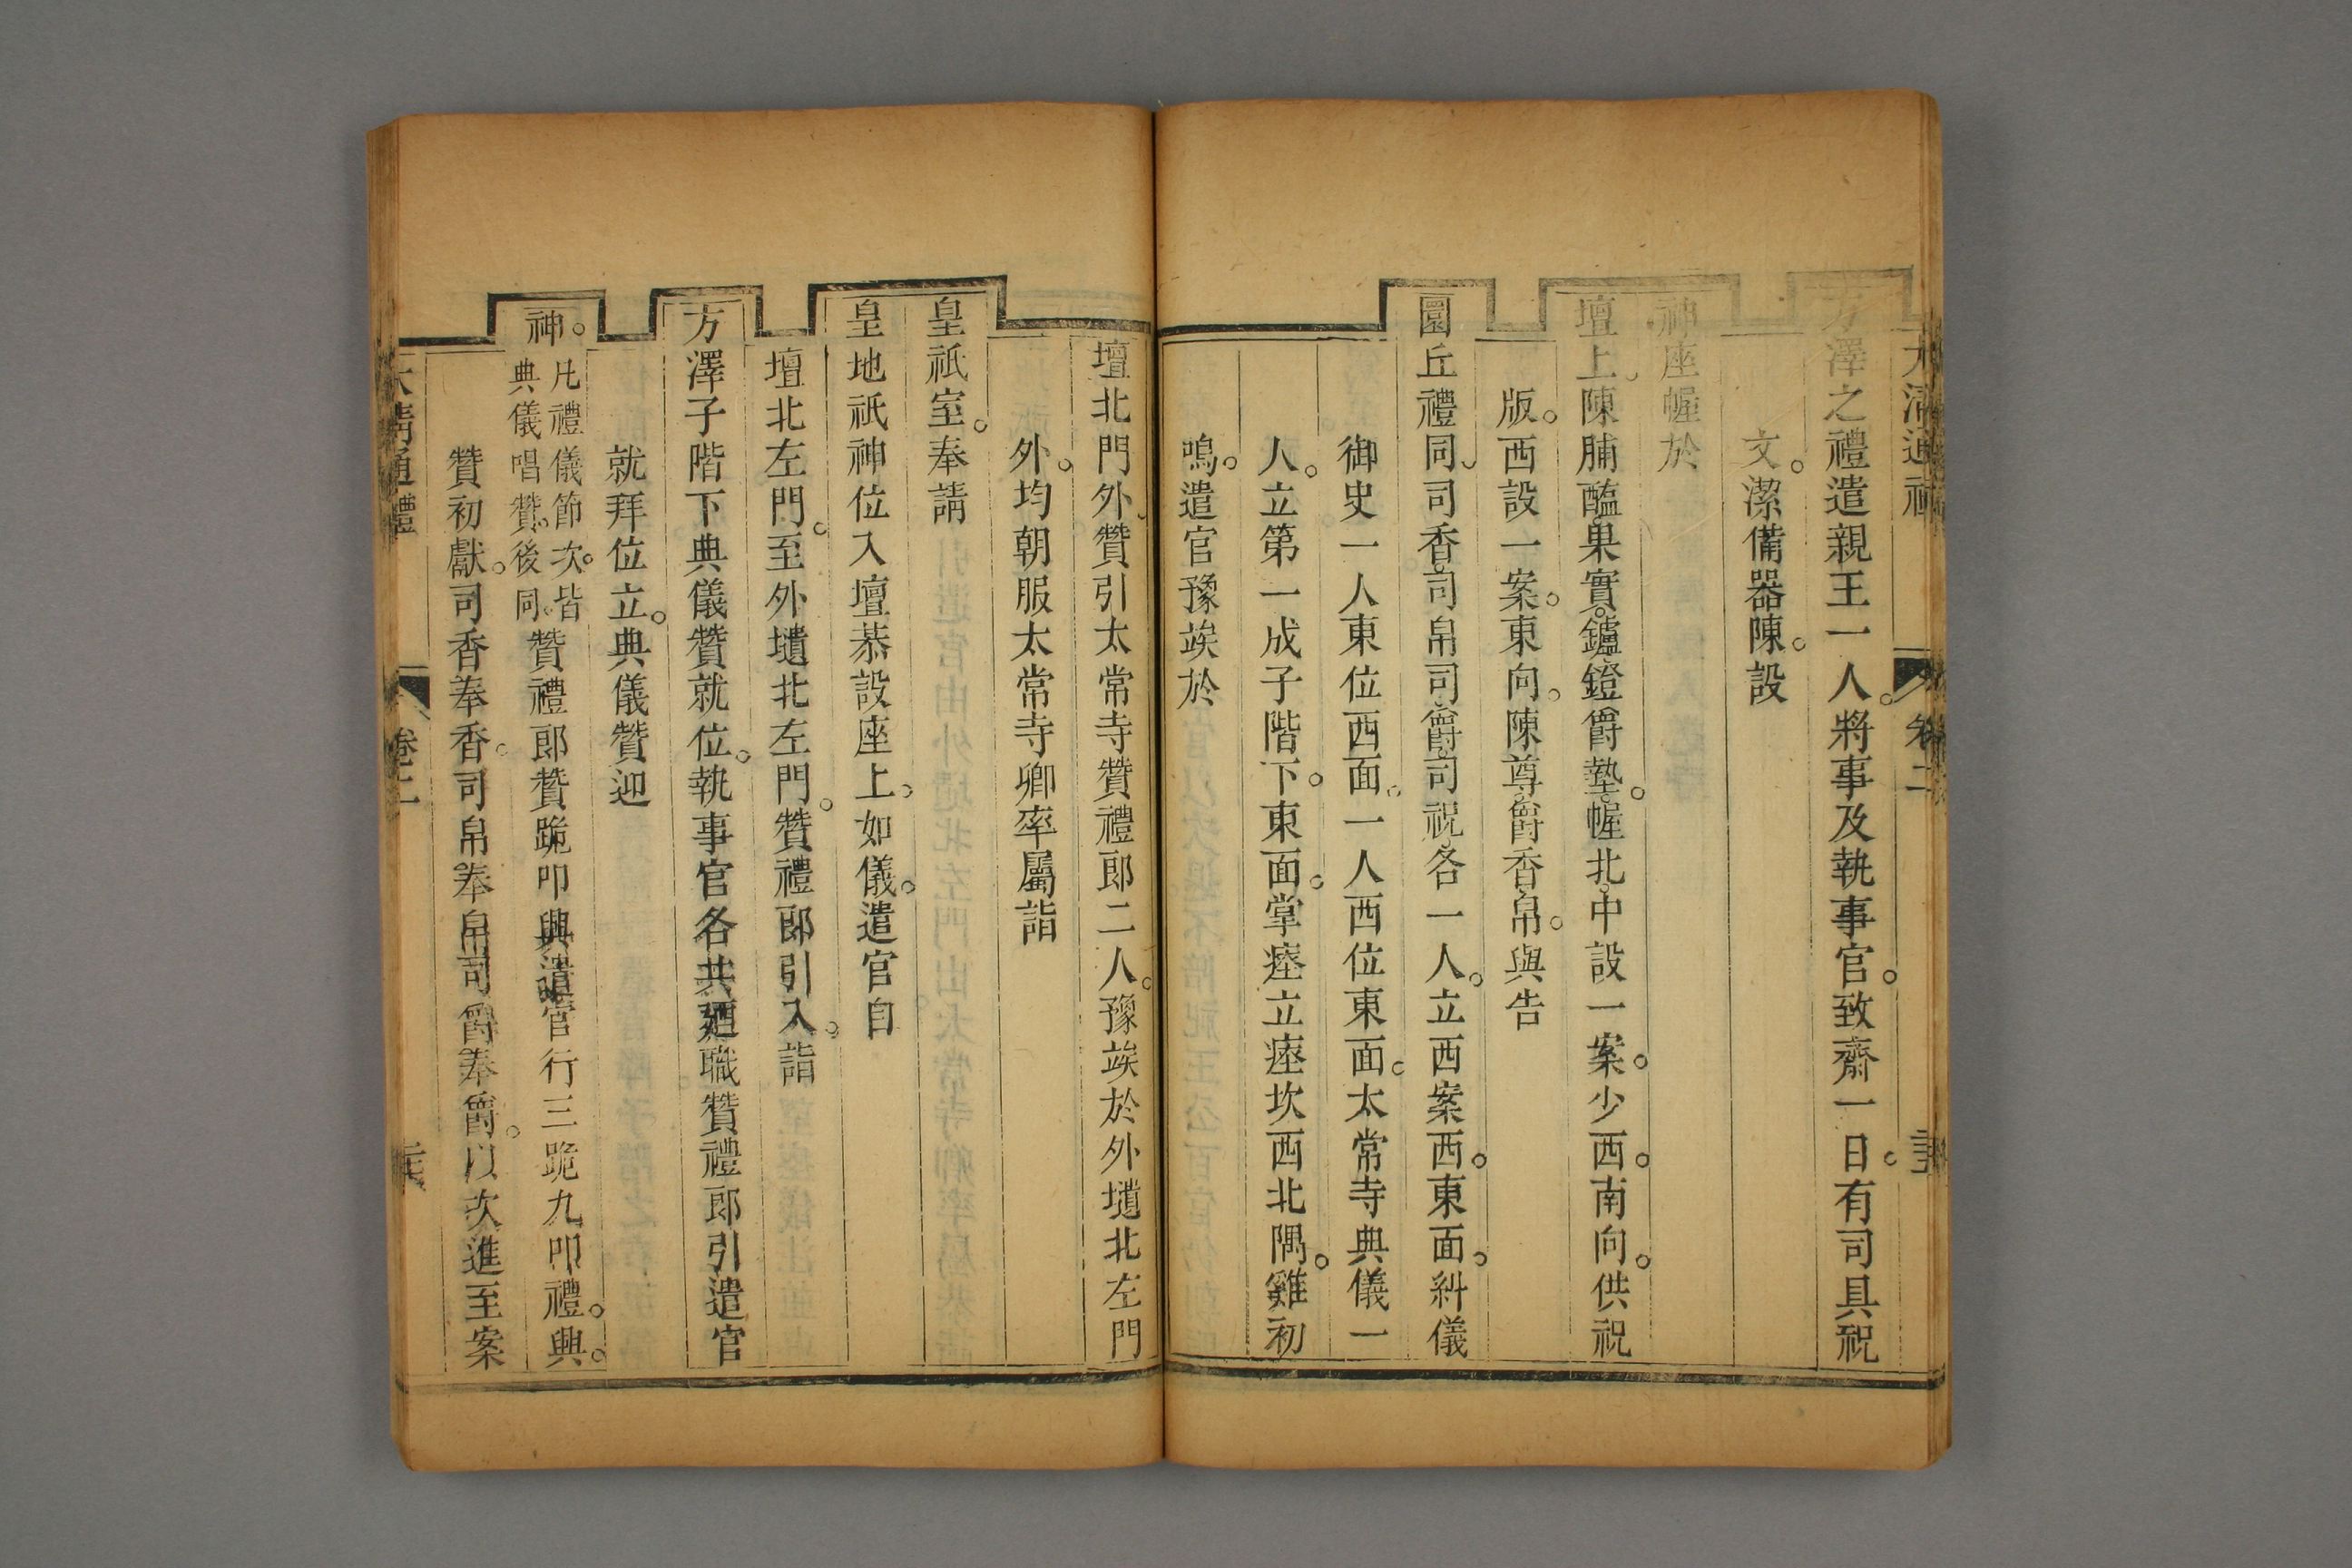 方澤之禮遣親王一人。將事及執事官。致齋一日。有司具祝
文。潔備器陳。設
神座幄於
壇上。陳脯醢果實。鑪鐙爵墊。幄北。中設一案。少西。南向。供祝
版。西設一案。東向。陳尊爵香帛。與告
圜丘禮同。司香。司帛司爵。司祝各一人。立西案西。東面。糾儀
御史一人東位西面。一人西位東面。太常寺典儀一
人。立第一成子階下。東面。掌瘞立瘞坎西北隅。雞初
鳴。遣官豫竢於
壇北門外。贊引太常寺贊禮郎二人。豫竢於外壝北左門
外。均朝服太常寺卿率屬詣
皇祇室。奉請
皇地祇神位入壇恭設座上。如儀。遣官自
壇北左門。至外壝北左門。贊禮郎引入。詣
方澤子階下典儀贊就位。執事官各共廼職贊禮郎引遣官
就拜位立。典儀贊迎
神。凡禮儀節次。皆典儀唱贊。後同。贊禮郎贊跪叩興遣官行三跪九叩禮。興。
贊初獻。司香奉香。司帛奉帛司爵奉爵。以次進至案
大清通禮 卷二